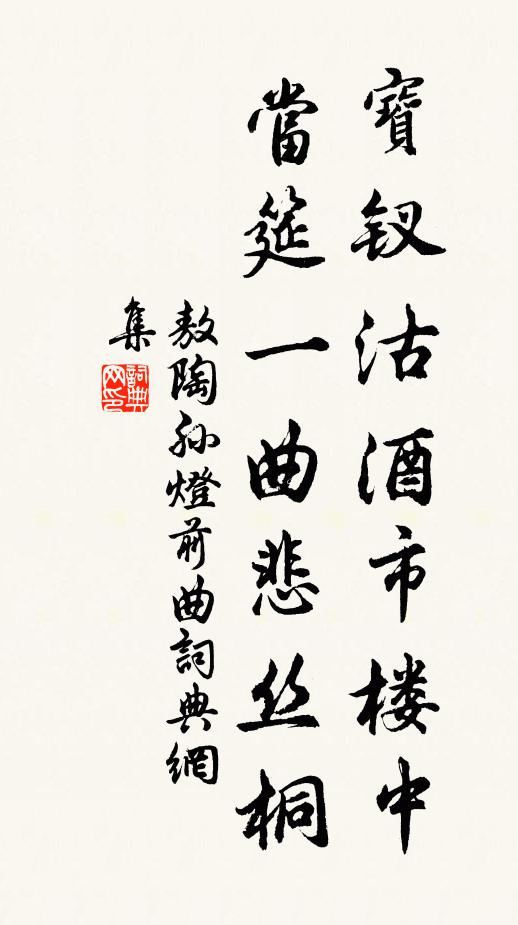 寶釵沽酒市楼中
當筵一曲悲丝桐
敖陶孙燈前曲詞典網
集
詞典网印